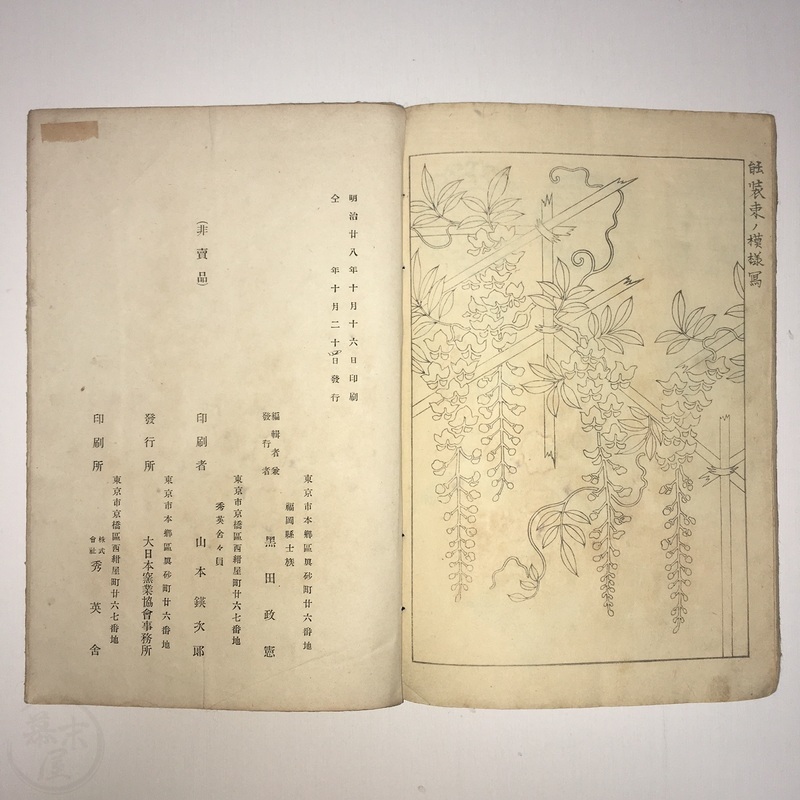 能装束ノ模様寫
明治廿八年十月十六日印刷
仝　年十月二十四日發行
(非賣品)
東京市本鄕區眞砂町廿六番地
福岡縣士族
編輯者兼
發行者
黑田政憲
東京市京橋區西紺屋町廿六七番地
秀英舍々員
印刷者　山本鍈次郞
東京市本鄕區眞砂町廿六番地
發行所　大日本窯業協會事務所
東京市京橋區西紺屋町廿六七番地
印刷所　株式會社　秀英舍
幕末屋